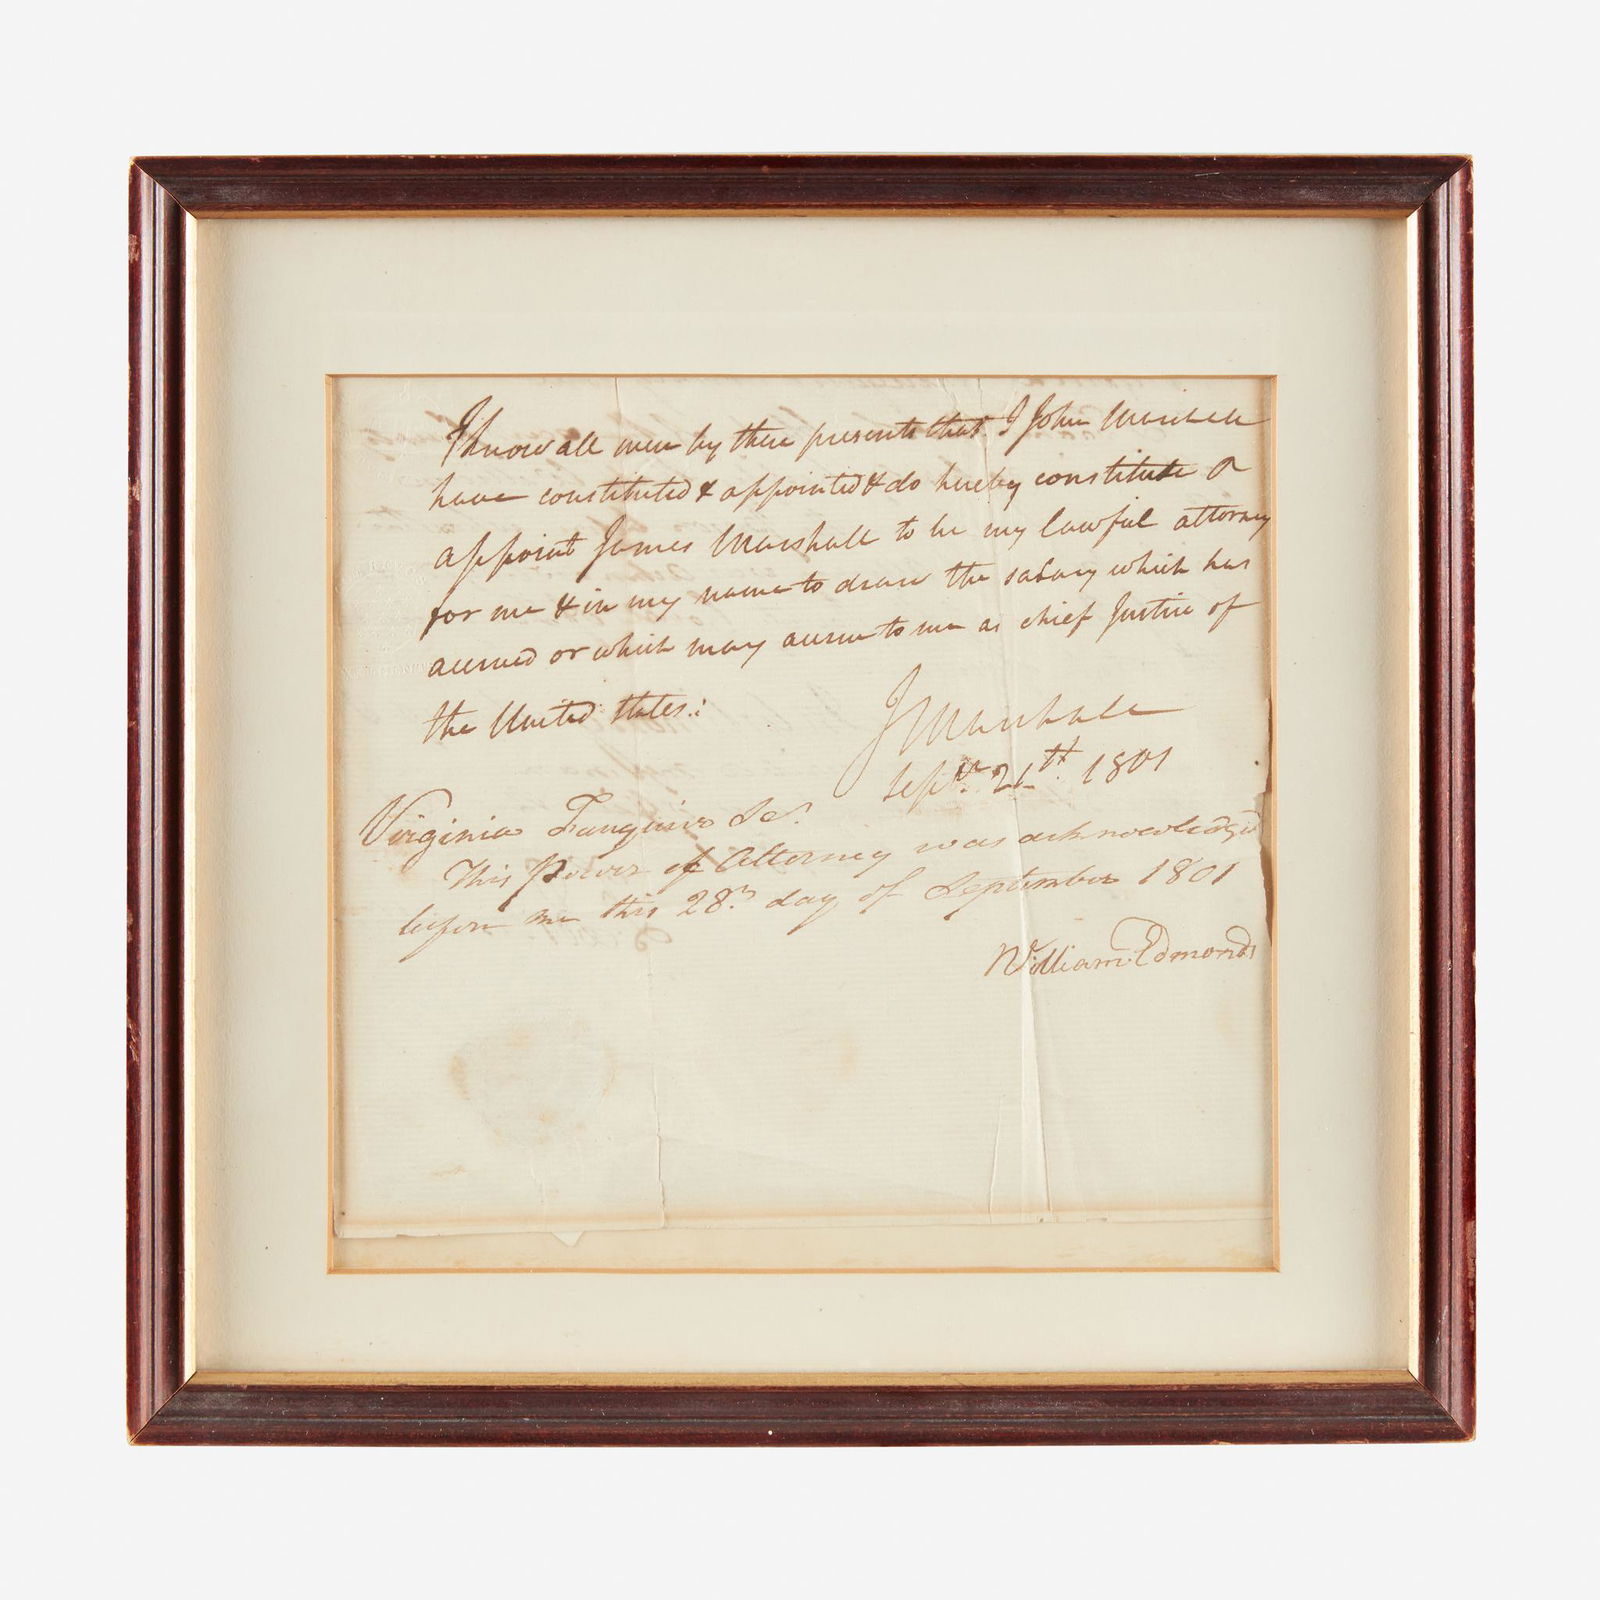 Know all men by these presents that I John Marshall
have constituted & appointed & do hereby constitute &
appoint James Marshall to be my lawful attorney
for me & in my name to draw the salary which has
accrued or which may accrue to me as chief Justice of
the United States.:
J Marshall
Septr. 21th 1801
Virginia Fauquier Sc.
This Power of Attorney was acknowledged
before me this 28th day of September 1801
William Edmonds